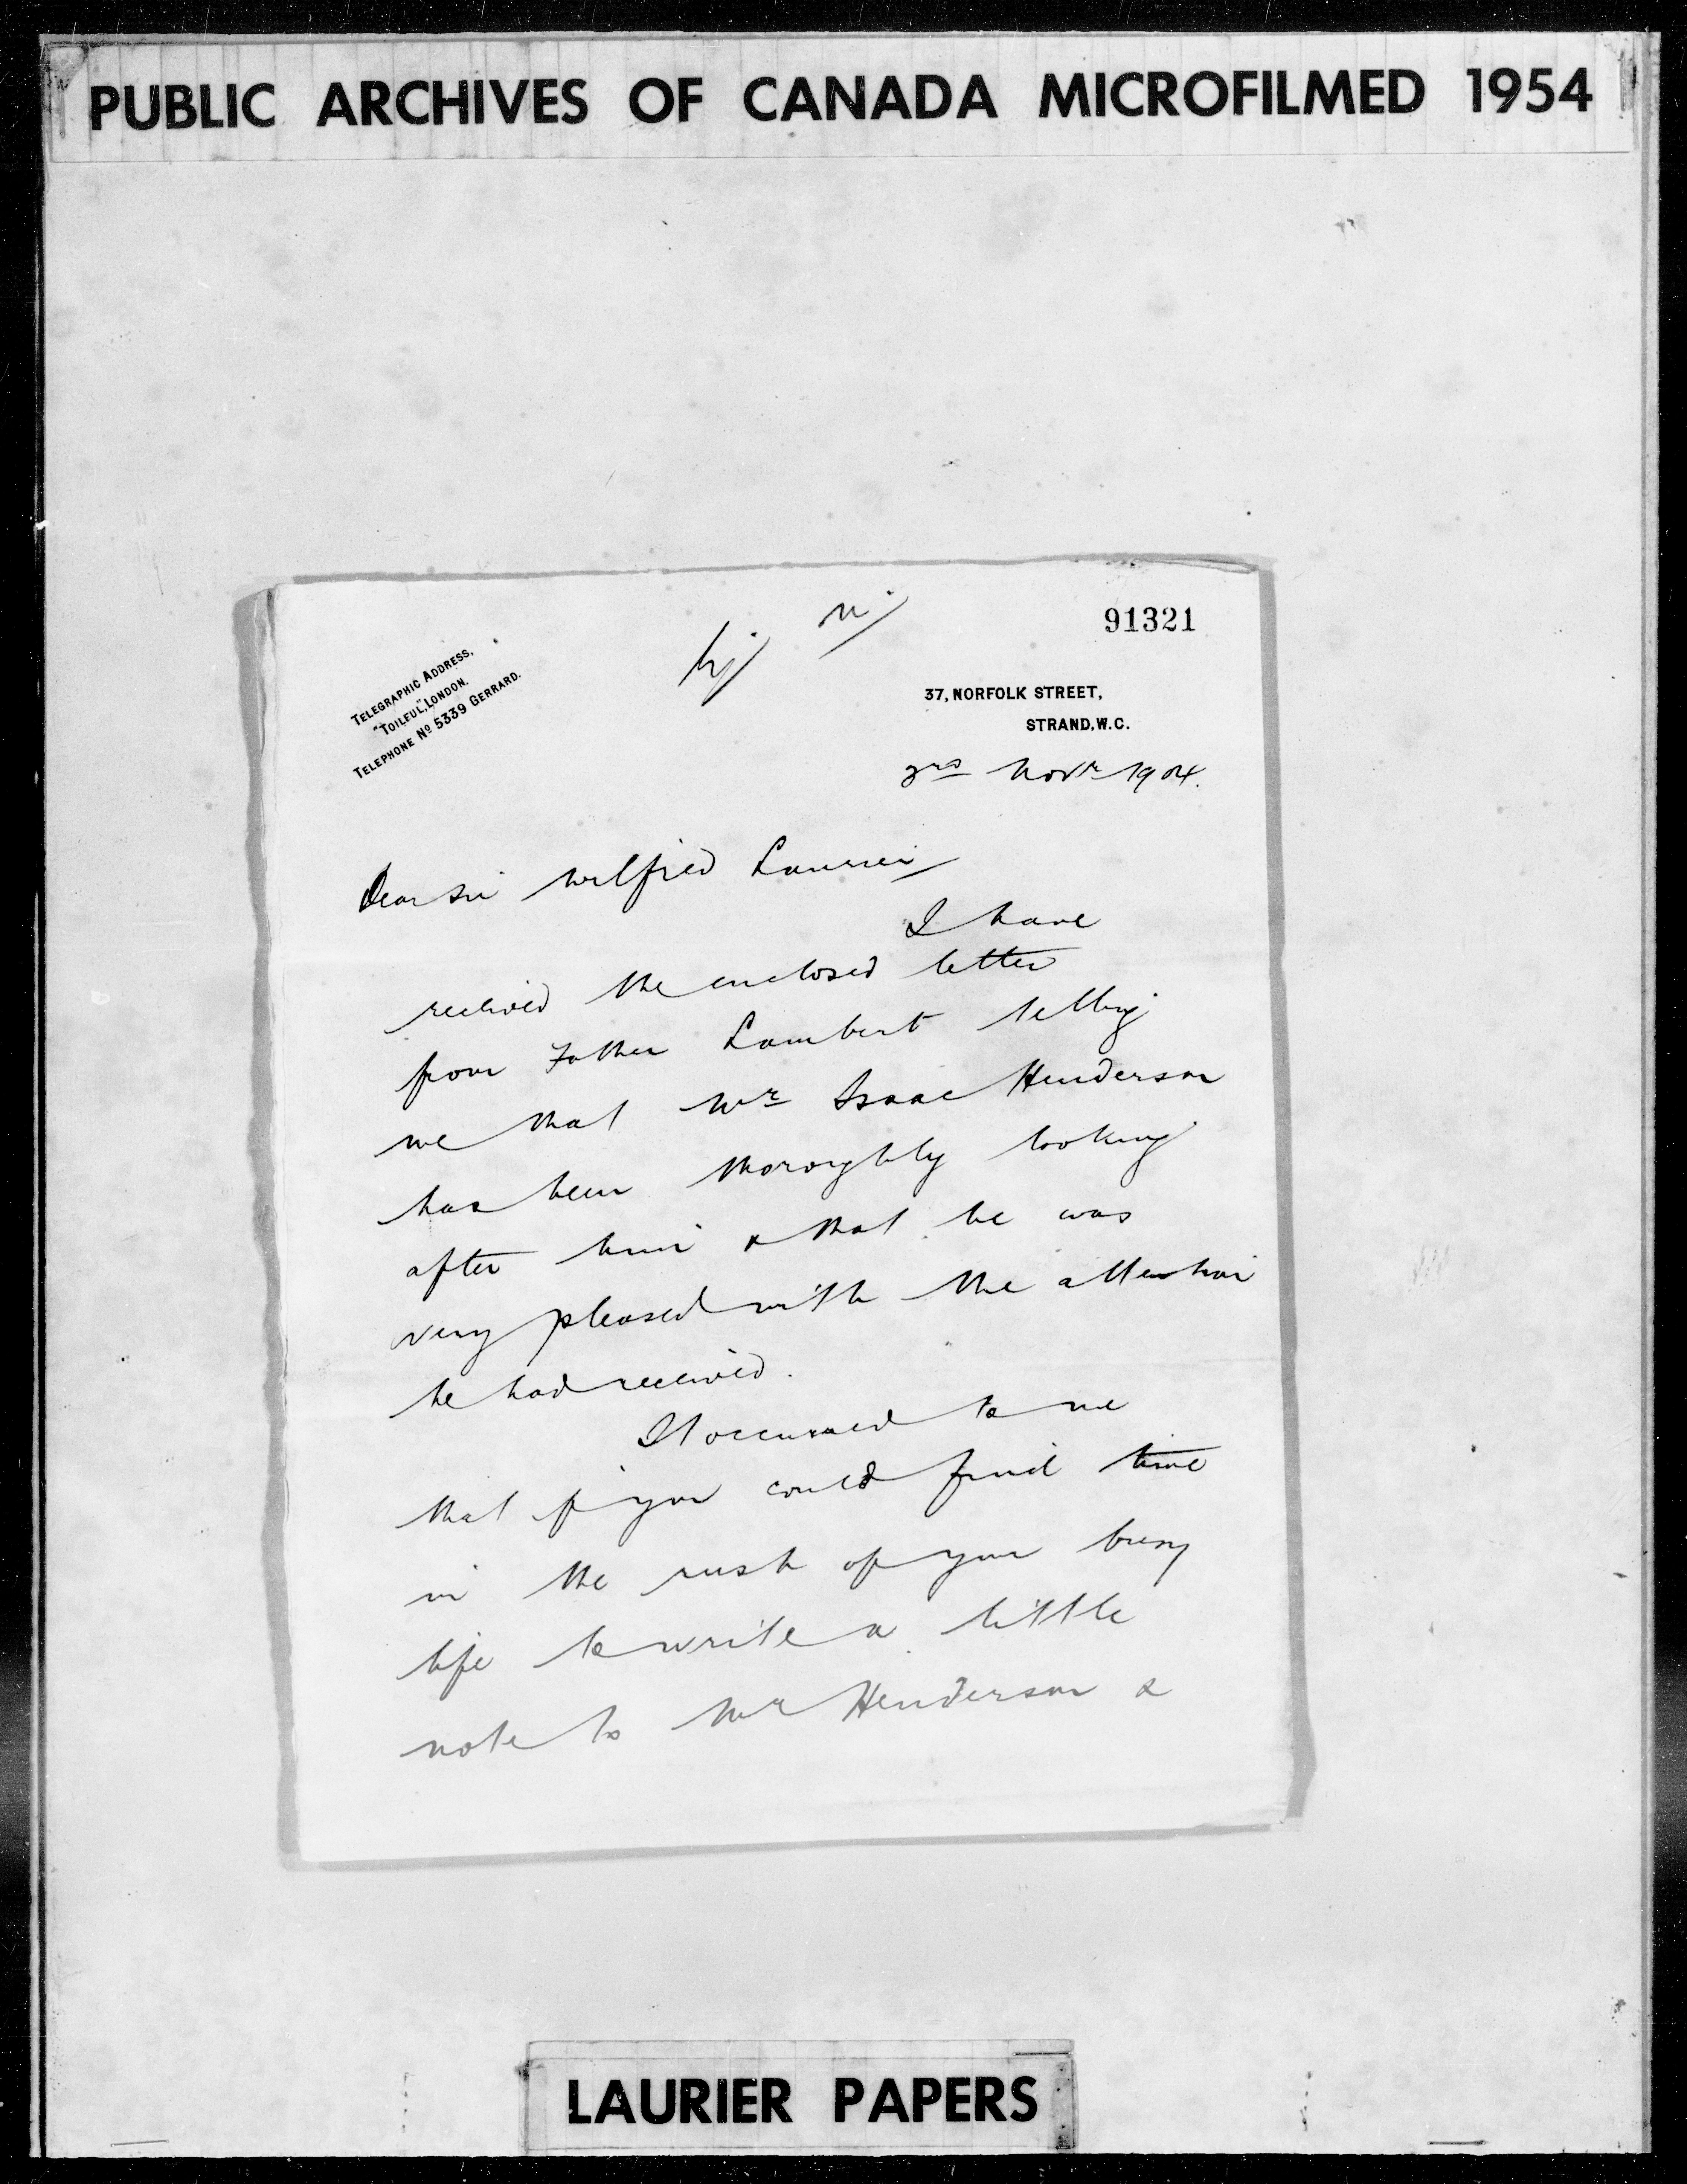 PUBLIC ARCHIVES OF CANADA MICROFILMED 1954
91321
TELEGRAPHIC ADDRESS,
"TOILFUL", LONDON.
TELEPHONE Nº 5339 GERRARD.
37, NORFOLK STREET,
STRAND, W.C.
3rd Novr 1904.
Dear Sir Wilfrid Laurier
I have
received the enclosed letter
from Father Lambert telling
me that Mr Isaac Henderson
has been thoroughly looking
after him & that he was
very pleased with the attention
he had received.
It occurred to me
that if you could find time
in the rush of your busy
life to write a little
note to Mr Henderson &
LAURIER PAPERS